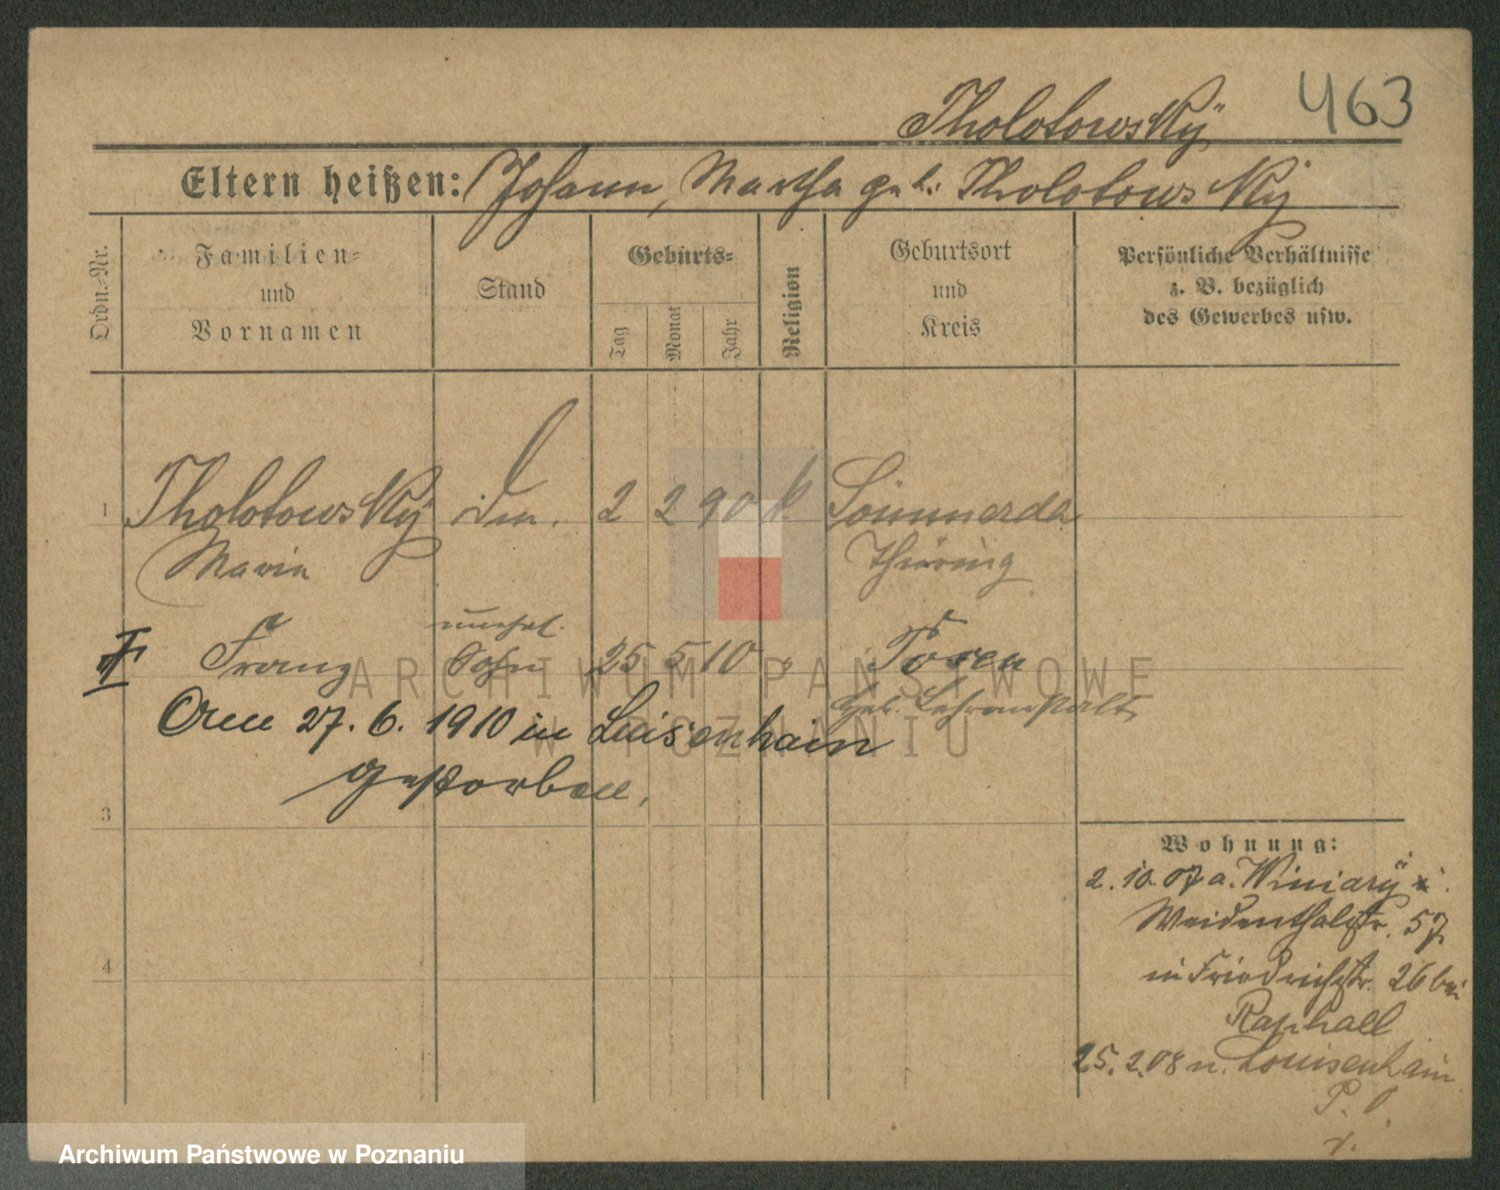 463
Tholotowskÿ
Eltern heißen: Johann, Martha geb. Tholotowsky
Ordn.-Nr.
Familien-
und
Vornamen
Stand
Geburts-
Tag
Monat
Jahr
Religion
Geburtsort
und
Kreis
Persönliche Verhältnisse
z. B. bezüglich
des Gewerbes usw.
1 Tholotowskÿ 2 2 90 k. Sömmerda
Maria Thüring
unehel.
Franz Sohn 25 5 10 " Posen
Heb. Lehranstalt
Am 27. 6. 1910 in Luisenhain
gestorben.
3
4
Wohnung:
2. 10. 07 a. Winiarÿ
Weidenthalstr. 57
in Friedrichstr. 26 bei
Raphall
25. 2. 08 n. Louisenhain
P. O.
ARCHIWUM PAŃSTWOWE
W POZNANIU
Archiwum Państwowe w Poznaniu